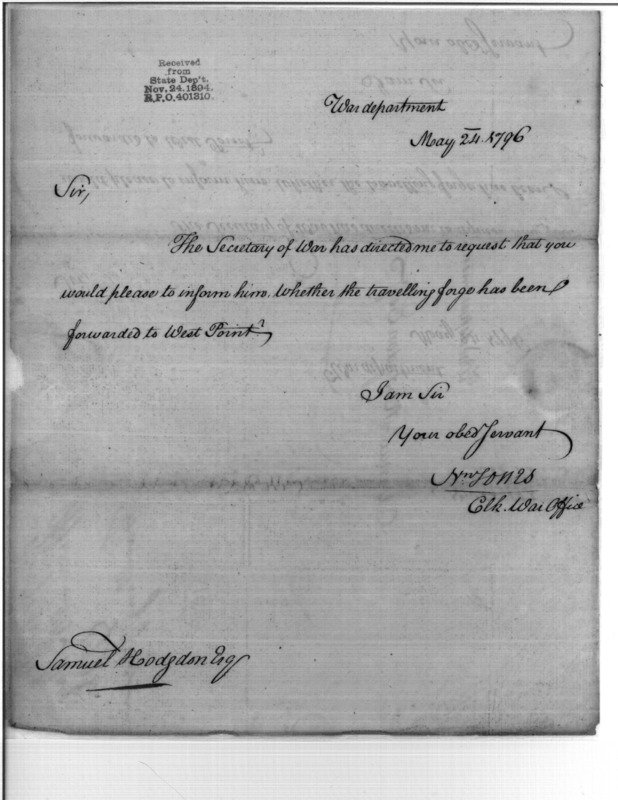 Received
from
State Dep't.
Nov. 24. 1894.
R.P.O. 401310.
War department
May 24. 1796
Sir,
The Secretary of War has directed me to request that you
would please to inform him, whether the travelling forge has been
forwarded to West Point?
I am Sir
Your obed Servant
Nw Jones
Clk. War Office
Samuel Hodgdon Esq